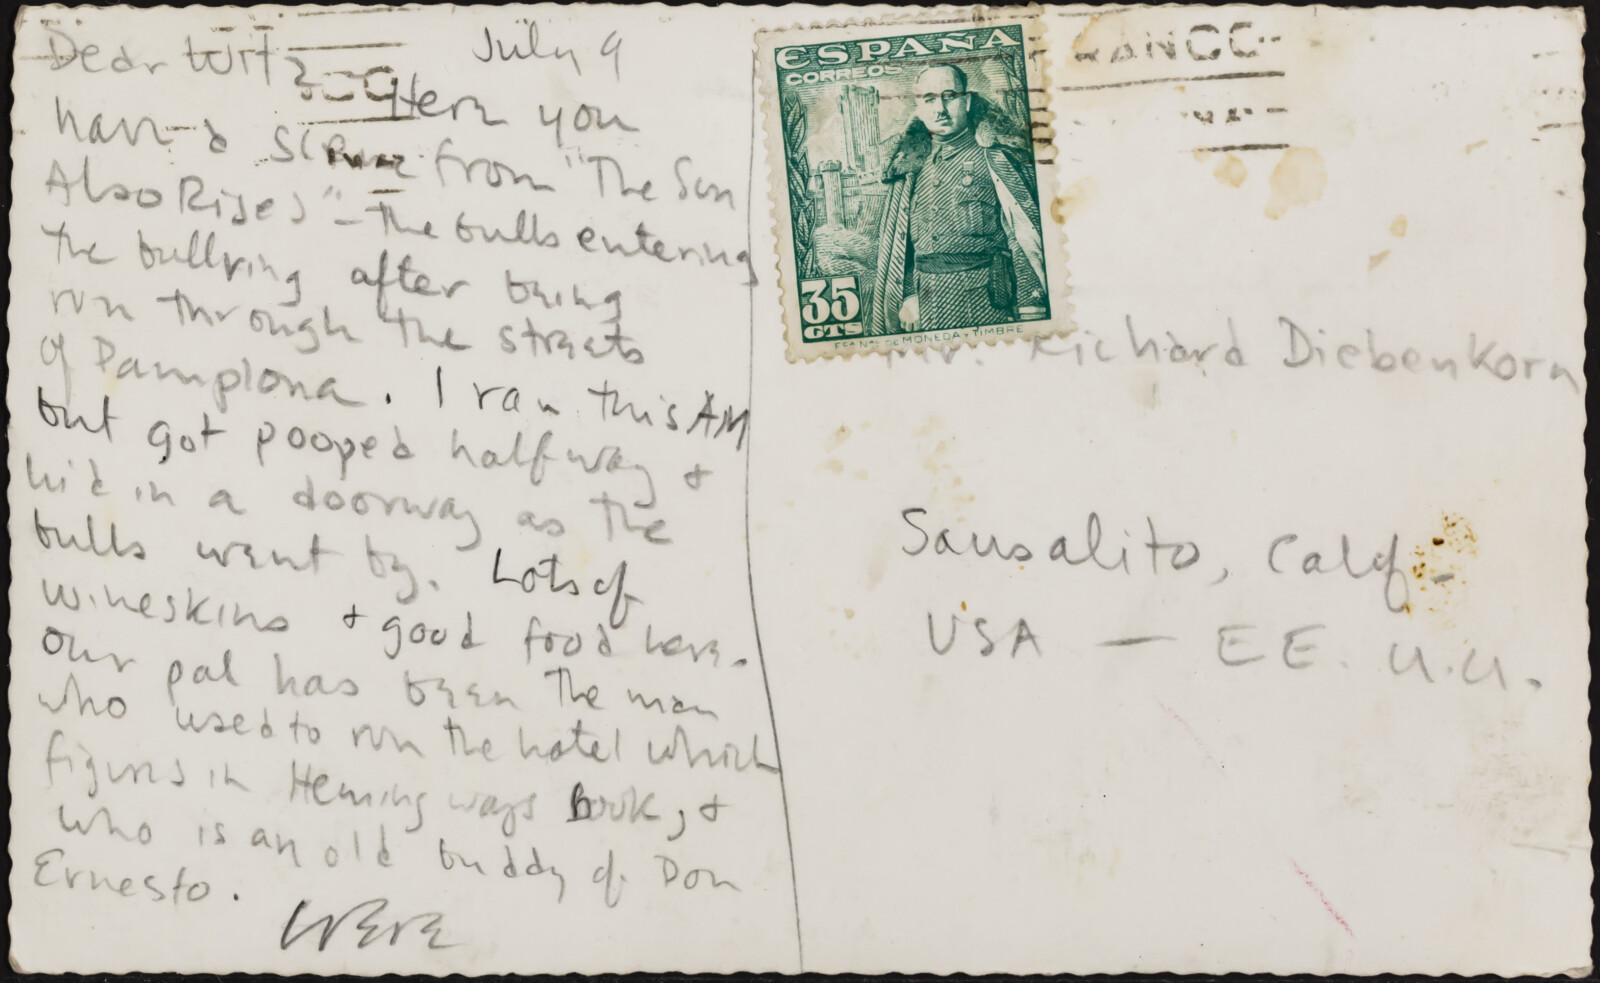 July 9
Dear Witz
Here you
have a scene from "The Sun
Also Rises" – the bulls entering
the bullring after being
run through the streets
of Pamplona. I ran this AM
but got pooped halfway &
hid in a doorway as the
bulls went by. Lots of
wineskins & good food here.
Our pal has been the man
who used to run the hotel which
figures in Hemingways book, &
who is an old buddy of Don
Ernesto.
ESPAÑA
CORREOS
35
CTS
FCA NAL DE MONEDA Y TIMBRE
Mr. Richard Diebenkorn
Sausalito, Calif.
USA — EE. U.U.